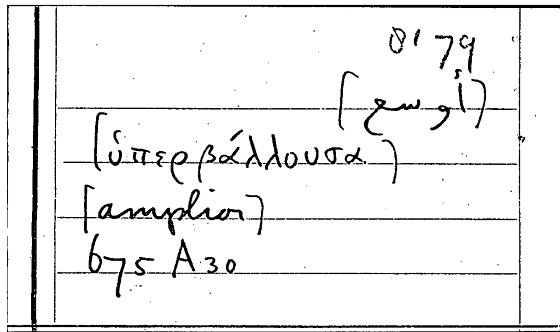 0179
[ὑπερβάλλουσα]
[amplior]
675 A 30